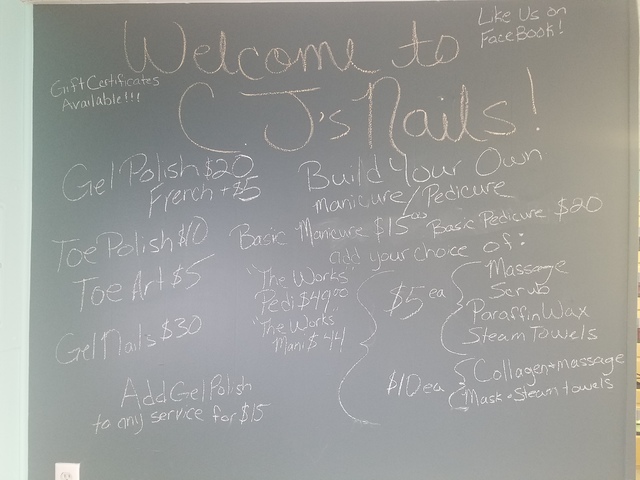 Welcome to
C.J's Nails!
Like Us on
FaceBook!
Gift Certificates
Available!!!
Gel Polish $20
French +$5
Toe Polish $10
Toe Art $5
Gel Nails $30
Add Gel Polish
to any service for $15
Build Your Own
Manicure/Pedicure
Basic Manicure $15.00 Basic Pedicure $20
add your choice of:
"The Works"
Pedi $49.00
"The Works"
Mani $44
$5 ea
Massage
Scrub
Paraffin Wax
Steam Towels
$10 ea
Collagen+massage
Mask+Steam towels